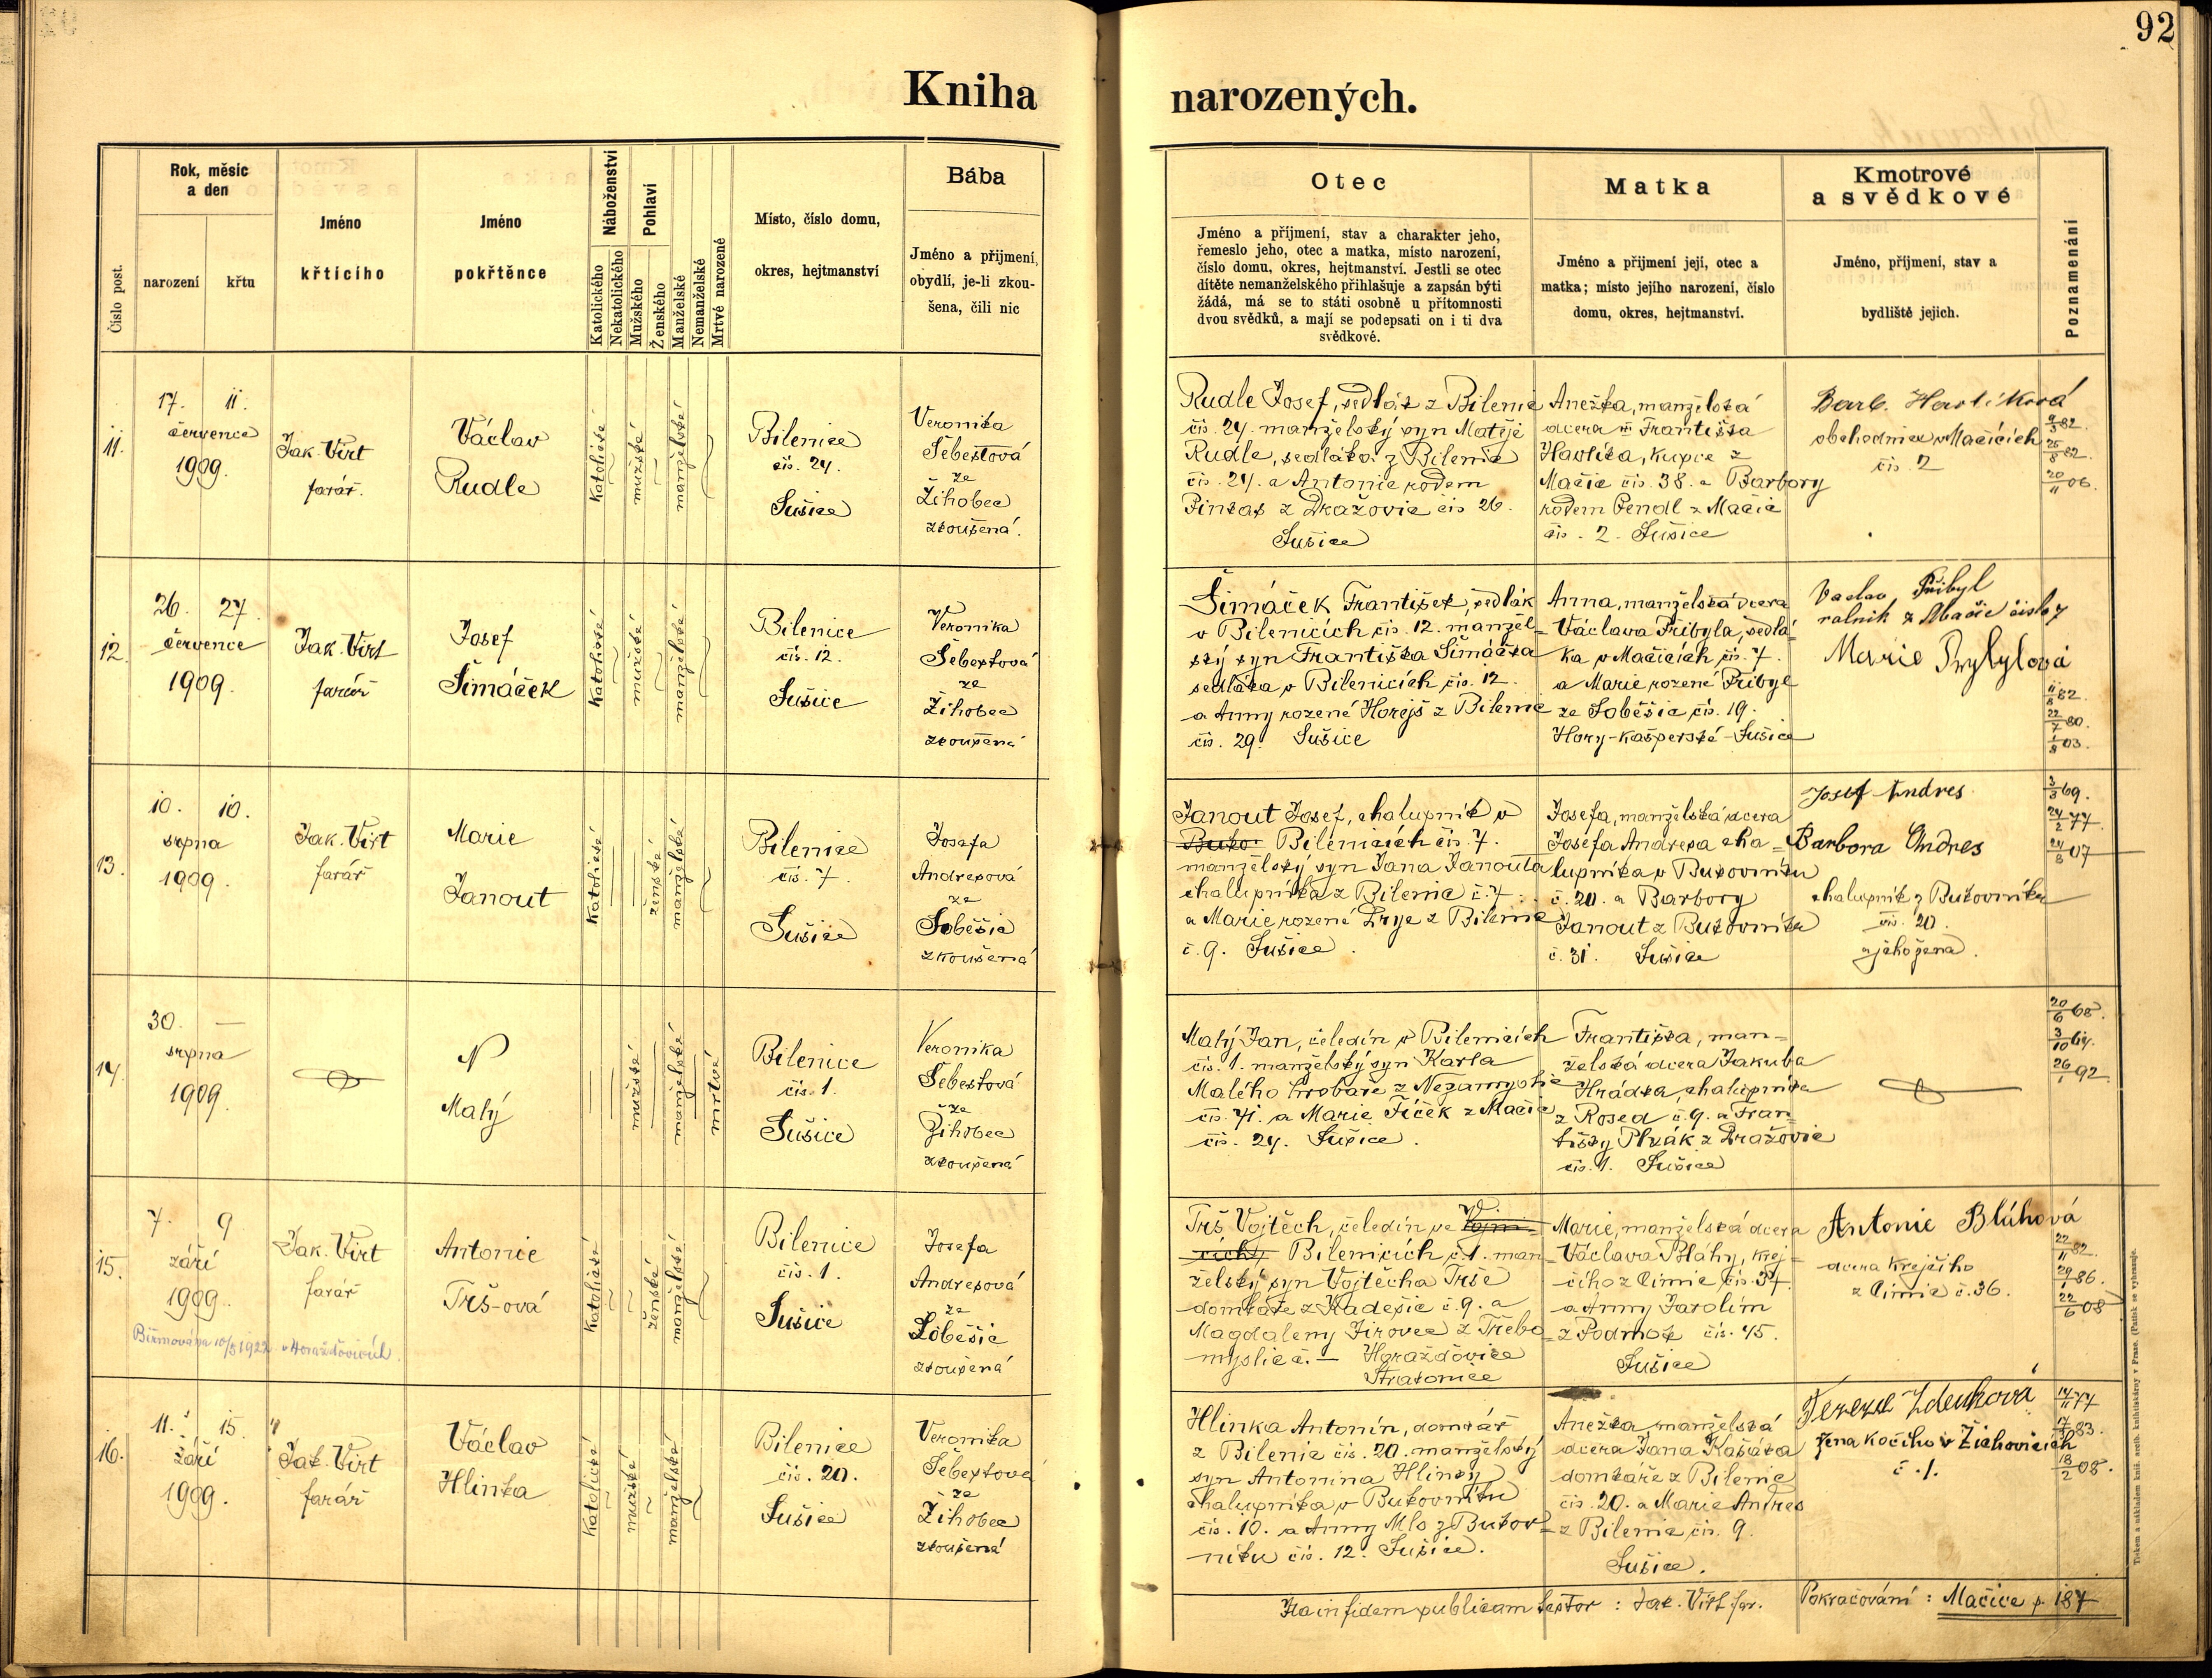 92
Kniha narozených.
Číslo post.
Rok, měsíc
a den
narození
křtu
Jméno
křtícího
Jméno
pokřtěnce
Náboženství
Katolického
Nekatolického
Pohlaví
Mužského
Ženského
Manželské
Nemanželské
Mrtvě narozené
Místo, číslo domu,
okres, hejtmanství
Bába
Jméno a přijmení,
obydlí, je-li zkou-
šena, čili nic
Otec
Jméno a příjmení, stav a charakter jeho,
řemeslo jeho, otec a matka, místo narození,
číslo domu, okres, hejtmanství. Jestli se otec
dítěte nemanželského přihlašuje a zapsán býti
žádá, má se to státi osobně u přítomnosti
dvou svědků, a mají se podepsati on i ti dva
svědkové.
Matka
Jméno a přijmení její, otec a
matka; místo jejího narození, číslo
domu, okres, hejtmanství.
Kmotrové
a svědkové
Jméno, příjmení, stav a
bydliště jejich.
Poznamenání
11.
17. 11.
července
1909.
Jak. Virt
farář.
Václav
Rudle
katolické
mužské
manželské
Bilenice
čís. 24.
Sušice
Veronika
Šebestová
ze
Žihobec
zkoušená.
Rudle Josef, sedlák z Bilenic
čís. 24. manželský syn Matěje
Rudle, sedláka z Bilenic
čís. 24. a Antonie rodem
Pintas z Dražovic čís 26.
Sušice
Anežka, manželská
dcera Františka
Havlíka, kupce z
Mačic čís. 38. a Barbory
rodem Pendl z Mačic
čís. 2. Sušice
Barb. Havlíková
obchodnice v Mačicích
čís. 2
9/3 82.
25/8 82.
20/11 06.
12.
26. 27.
července
1909.
Jak. Virt
farář
Josef
Šimáček
katolické
mužské
manželské
Bilenice
čís. 12.
Sušice
Veronika
Šebestová
ze
Žihobec
zkoušená
Šimáček František, sedlák
v Bilenicích čís. 12. manžel-
ský syn Františka Šimáčka
sedláka v Bilenicích čís. 12.
a Anny rozené Horejš z Bilenic
čís. 29. Sušice
Anna, manželská dcera
Václava Přibyla, sedlá-
ka v Mačicích čís. 7.
a Marie rozené Přibyl
ze Soběšic čís. 19.
Hory-Kašperské - Sušice
Vaclav Přibyl
rolnik z Mačic čislo 7
Marie Prybylová
11/8 82.
22/7 80.
1/8 03.
13.
10. 10.
srpna
1909.
Jak. Virt
farář
Marie
Janout
katolické
ženské
manželské
Bilenice
čís. 7.
Sušice
Josefa
Andresová
ze
Soběšic
zkoušená
Janout Josef, chalupník v
Buko- Bilenicích čís. 7.
manželský syn Jana Janouta
chalupníka z Bilenic č. 7.
a Marie rozené Prye z Bilenic
č. 9. Sušice.
Josefa, manželská dcera
Josefa Andresa cha-
lupníka v Bukovníku
č. 20. a Barbory
Janout z Bukovníka
č. 31. Sušice
Josef Andres
Barbora Andres
chalupník z Bukovníka
čís. 20.
a jeho žena.
3/3 69.
24/2 77.
24/8 07
14.
30. —
srpna
1909.
N
Malý
mužské
manželské
mrtvé
Bilenice
čís. 1.
Sušice
Veronika
Šebestová
ze
Žihobec
zkoušená
Malý Jan, čeledín v Bilenicích
čís. 1. manželský syn Karla
Malého hrobaře z Nezamyslic
čís. 41. a Marie Fíček z Mačic
čís. 24. Sušice.
Františka, man-
želská dcera Jakuba
Hrádka, chalupníka
z Rosed č. 9. a Fran-
tišky Plzák z Dražovic
čís. 1. Sušice
20/6 68.
3/10 64.
26/1 92.
15.
7. 9
září
1909.
Jak. Virt
farář
Antonie
Trš-ová
Biřmována 10/8 1922 v Horažďovicích
katolické
ženské
manželské
Bilenice
čís. 1.
Sušice
Josefa
Andresová
ze
Soběšic
zkoušená
Trš Vojtěch, čeledín ve Vojni-
cích, Bilenicích č. 1. man-
želský syn Vojtěcha Trše
domkáře z Kadešic č. 9. a
Magdaleny Jirovec z Třebo-
myslic č. — Horažďovice
Strakonice
Marie, manželská dcera
Václava Bláhy, krej-
čího z Čimic čís. 37
a Anny Jarolím
z Podmok čís. 45.
Sušice
Antonie Bláhová
dcera krejčího
z Čimic č. 36.
22/11 82.
29/1 86.
22/6 08
16.
11. 15.
září
1909.
Jak. Virt
farář
Václav
Hlinka
katolické
mužské
manželské
Bilenice
čís. 20.
Sušice
Veronika
Šebestova
ze
Žihobec
zkoušená
Hlinka Antonín, domkář
z Bilenic čís. 20. manželský
syn Antonína Hlinky
chalupníka v Bukovníku
čís. 10. a Anny Mls z Bukov-
níku čís. 12. Sušice.
Anežka manželská
dcera Jana Kašáka
domkáře z Bilenic
čís. 20. a Marie Andres
z Bilenic čís. 9.
Sušice.
Tereze Zdeňková
žena kočího v Žichovicích
č. 1.
14/11 77
17/3 83.
18/2 08.
Ita in fidem publicam testor: Jak. Virt far.
Pokračování: Mačice p. 187
Tiskem a nákladem kníž. arcib. knihtiskárny v Praze. (Patisk se vyhrazuje.